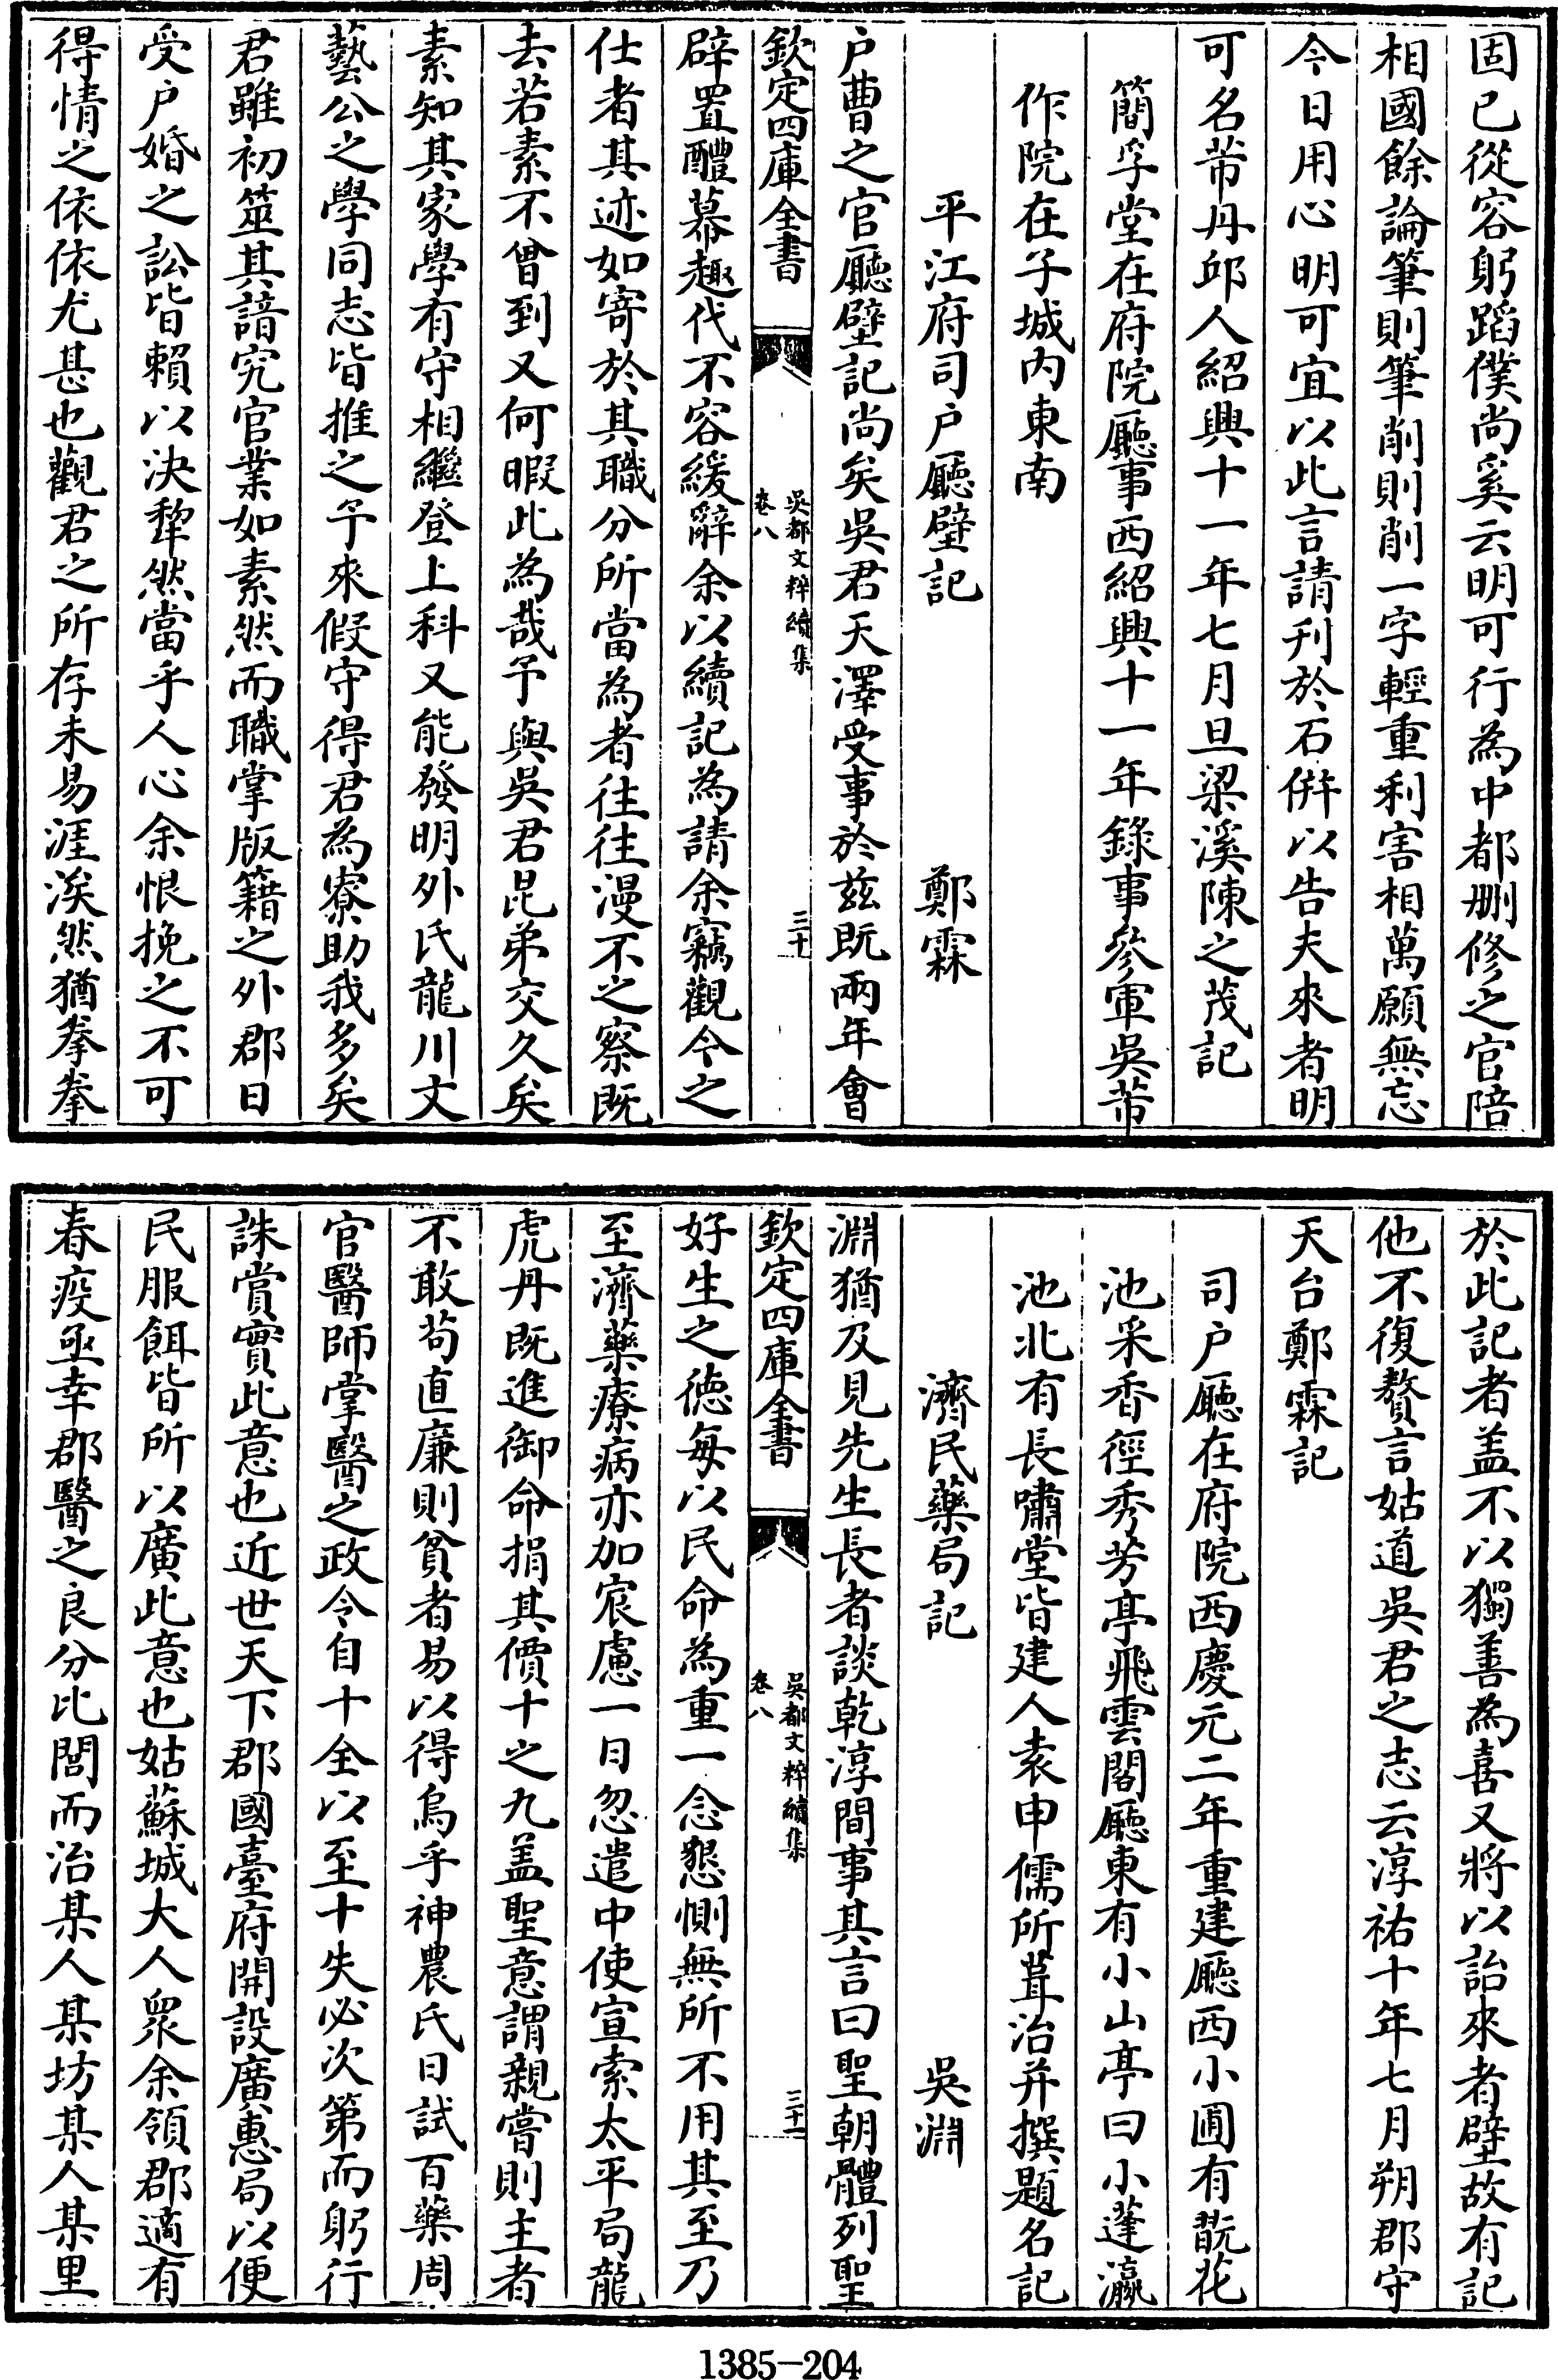 固已從容躬蹈僕尚奚云明可行為中都刪修之官陪
相國餘論筆則筆削則削一字輕重利害相萬願無忘
今日用心明可宜以此言請刊於石併以告夫來者明
可名芾丹邱人紹興十一年七月旦梁溪陳之茂記
簡孚堂在府院廳事西紹興十一年錄事參軍吳芾
作院在子城內東南
平江府司户廳壁記
鄭霖
户曹之官廳壁記尚矣吳君天澤受事於兹既兩年會
欽定四庫全書
吳都文粹續集
卷八
三十
辟置醴幕趣代不容緩辭余以續記為請余竊觀今之
仕者其迹如寄於其職分所當為者往往漫不之察既
去若素不曾到又何暇此為哉予與吳君昆弟交久矣
素知其家學有守相繼登上科又能發明外氏龍川文
藝公之學同志皆推之予來假守得君為寮助我多矣
君雖初筮其諳究官業如素然而職掌版籍之外郡日
受户婚之訟皆賴以決犂然當乎人心余恨挽之不可
得情之依依尤甚也觀君之所存未易涯涘然猶拳拳
於此記者盖不以獨善為喜又將以詒來者壁故有記
他不復贅言姑道吳君之志云淳祐十年七月朔郡守
天台鄭霖記
司户廳在府院西慶元二年重建廳西小圃有翫花
池采香徑秀芳亭飛雲閣廳東有小山亭曰小蓬瀛
池北有長嘯堂皆建人袁申儒所葺治并撰題名記
濟民藥局記
吳淵
淵猶及見先生長者談乾淳間事其言曰聖朝體列聖
欽定四庫全書
吳都文粹續集
卷八
三十一
好生之德每以民命為重一念懇惻無所不用其至乃
至濟藥療病亦加宸慮一日忽遣中使宣索太平局龍
虎丹既進御命捐其價十之九盖聖意謂親嘗則主者
不敢苟直廉則貧者易以得烏乎神農氏日試百藥周
官醫師掌醫之政令自十全以至十失必次第而躬行
誅賞實此意也近世天下郡國臺府開設廣惠局以便
民服餌皆所以廣此意也姑蘇城大人衆余領郡適有
春疫亟幸郡醫之良分比閭而治某人某坊某人某里
1385-204